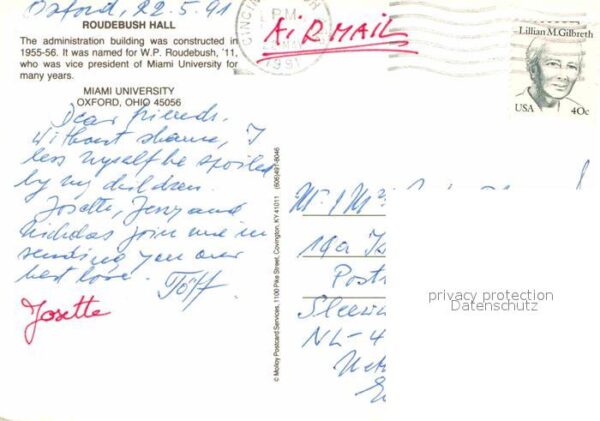 Oxford, 22.5.91
ROUDEBUSH HALL
The administration building was constructed in
1955-56. It was named for W.P. Roudebush, '11,
who was vice president of Miami University for
many years.
MIAMI UNIVERSITY
OXFORD, OHIO 45056
Dear friends.
Without shame, I
less myself be spoiled
by my children.
Josette, Jenz and
Nicholas join me in
sending you over
best love. Töff
Josette
© Molloy Postcard Services, 1100 Pike Street, Covington, KY 41011 (606)491-8046
PM
1991
AIR MAIL
Lillian M. Gilbreth
USA 40c
Mr & Mrs
19a
Post
NL-4
privacy protection
Datenschutz